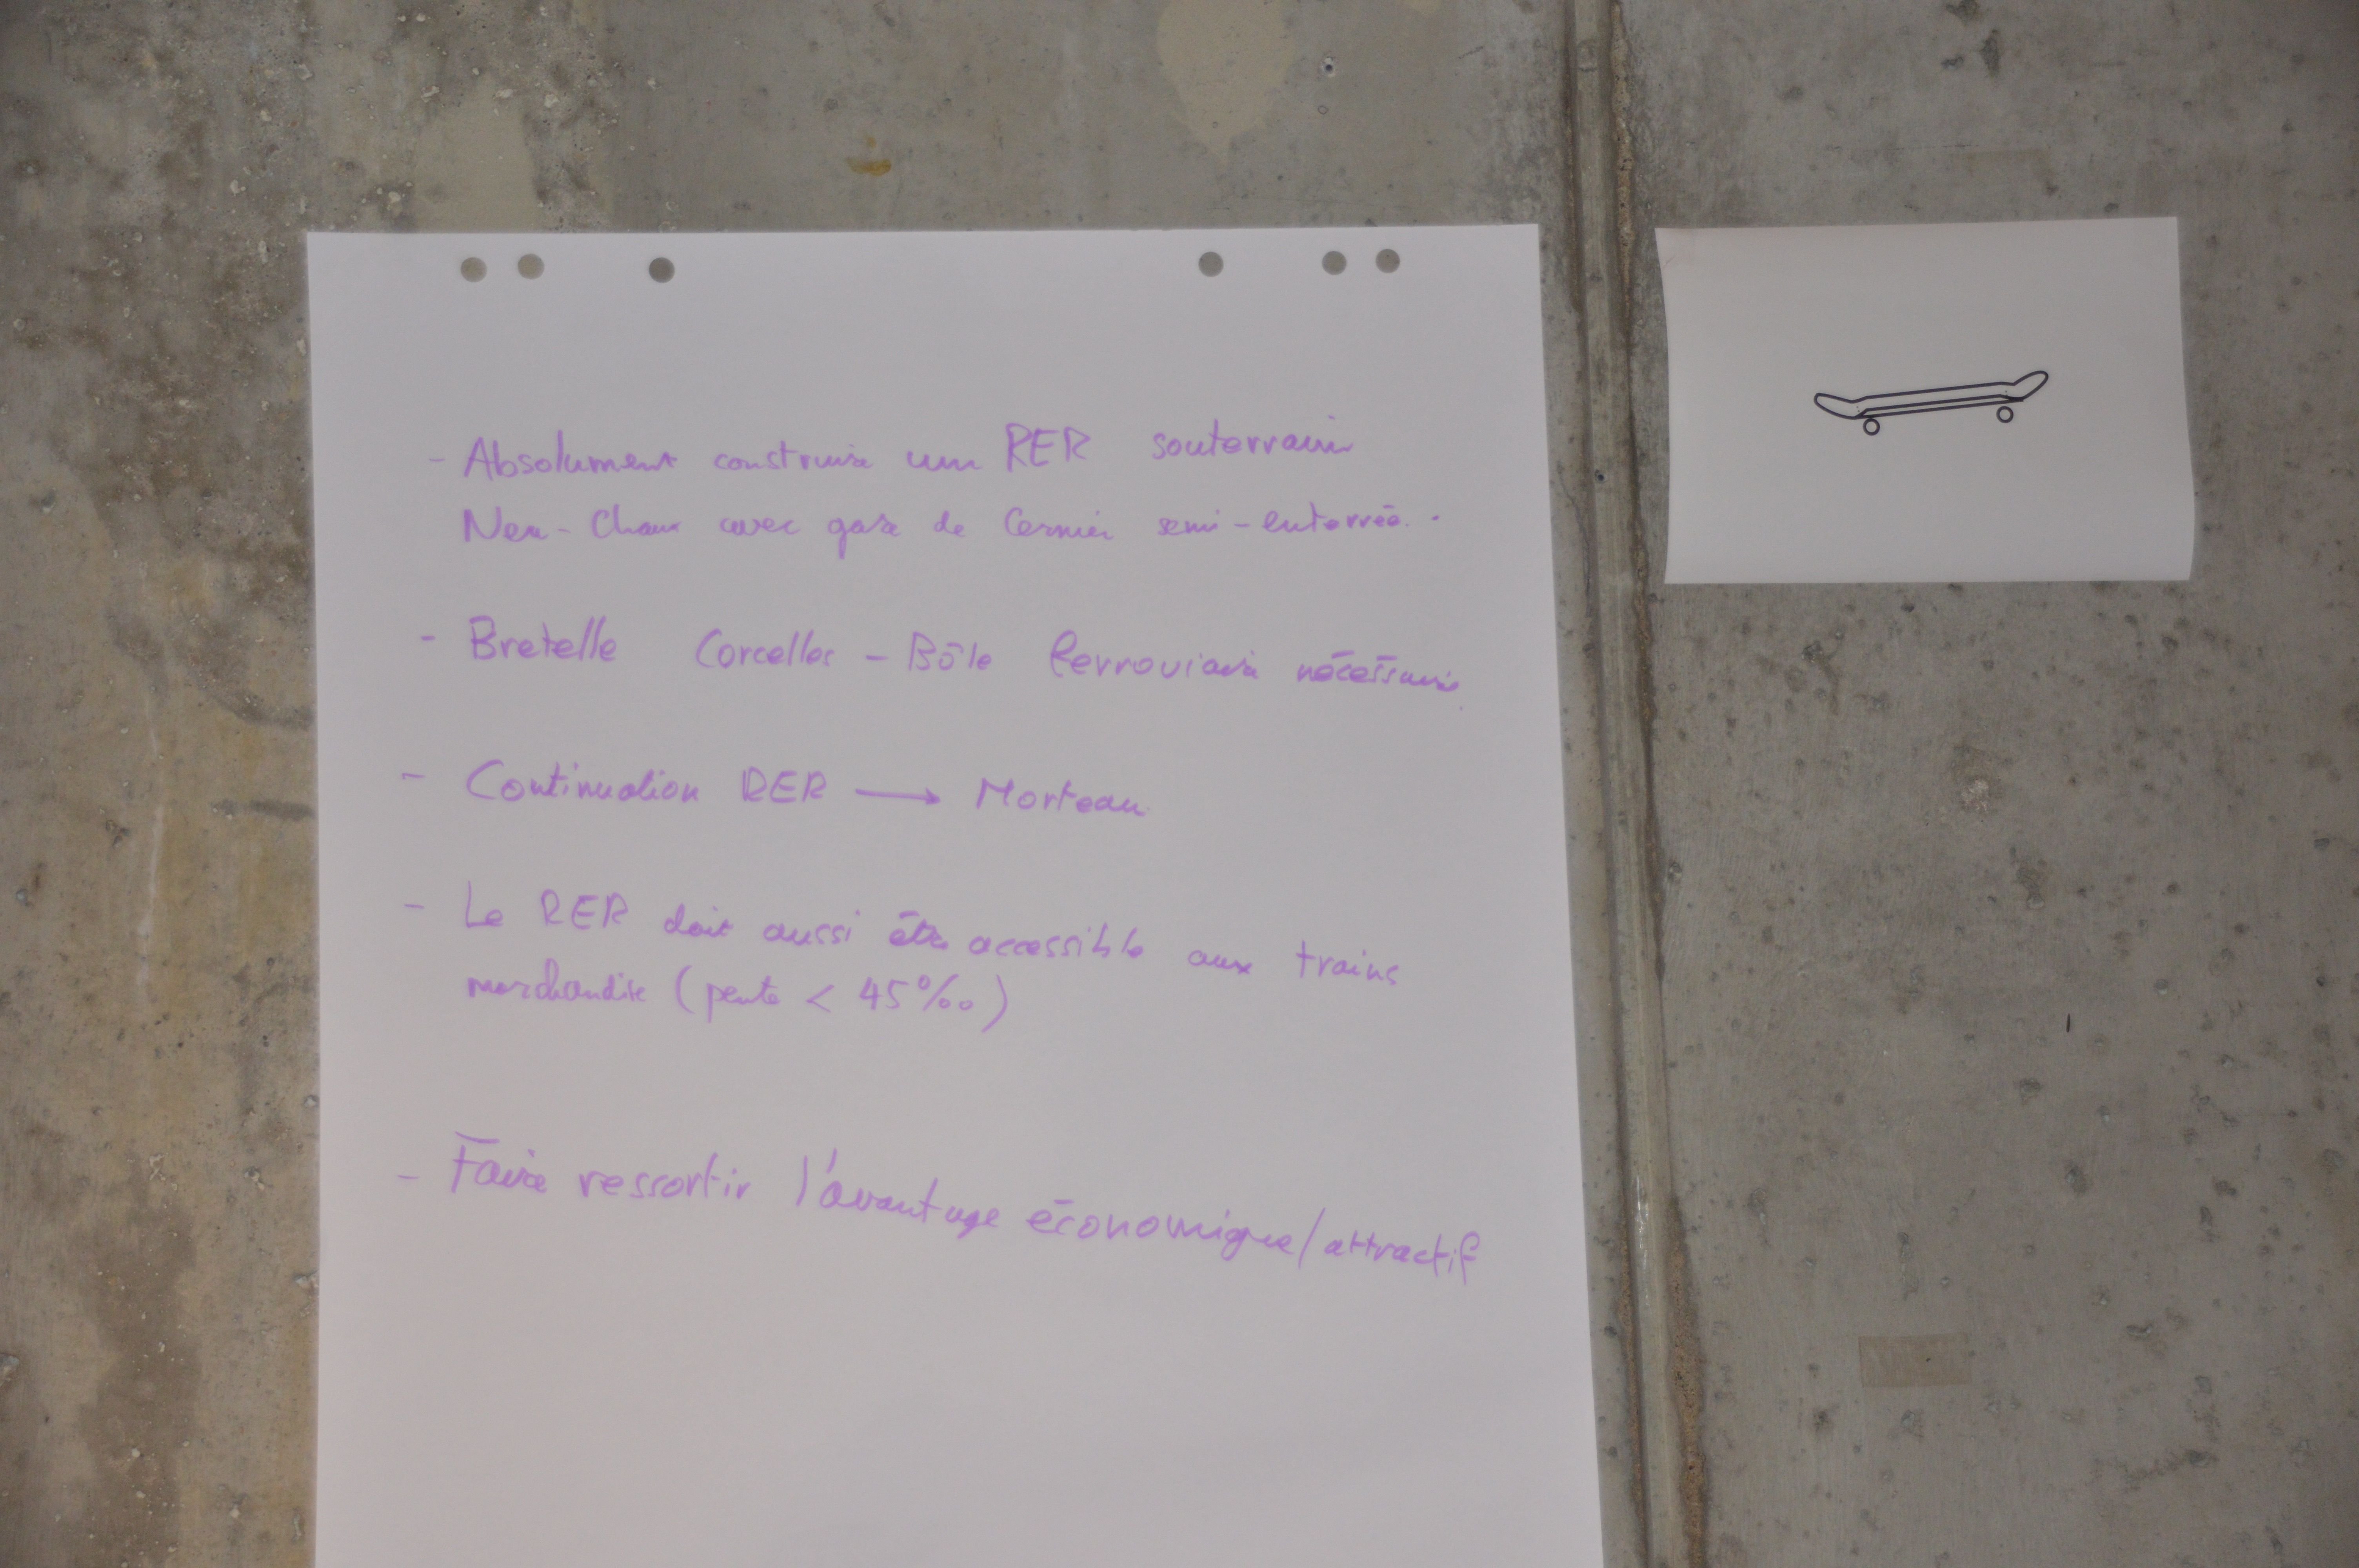 - Absolument construire un RER souterrain
Neu-Chaux avec gare de Cernier semi-enterrée.
- Bretelle Corcelles - Bôle ferroviaire nécessaire
- Continuation RER → Morteau
- Le RER doit aussi être accessible aux trains
marchandise (pente < 45‰)
- Faire ressortir l'avantage économique/attractif